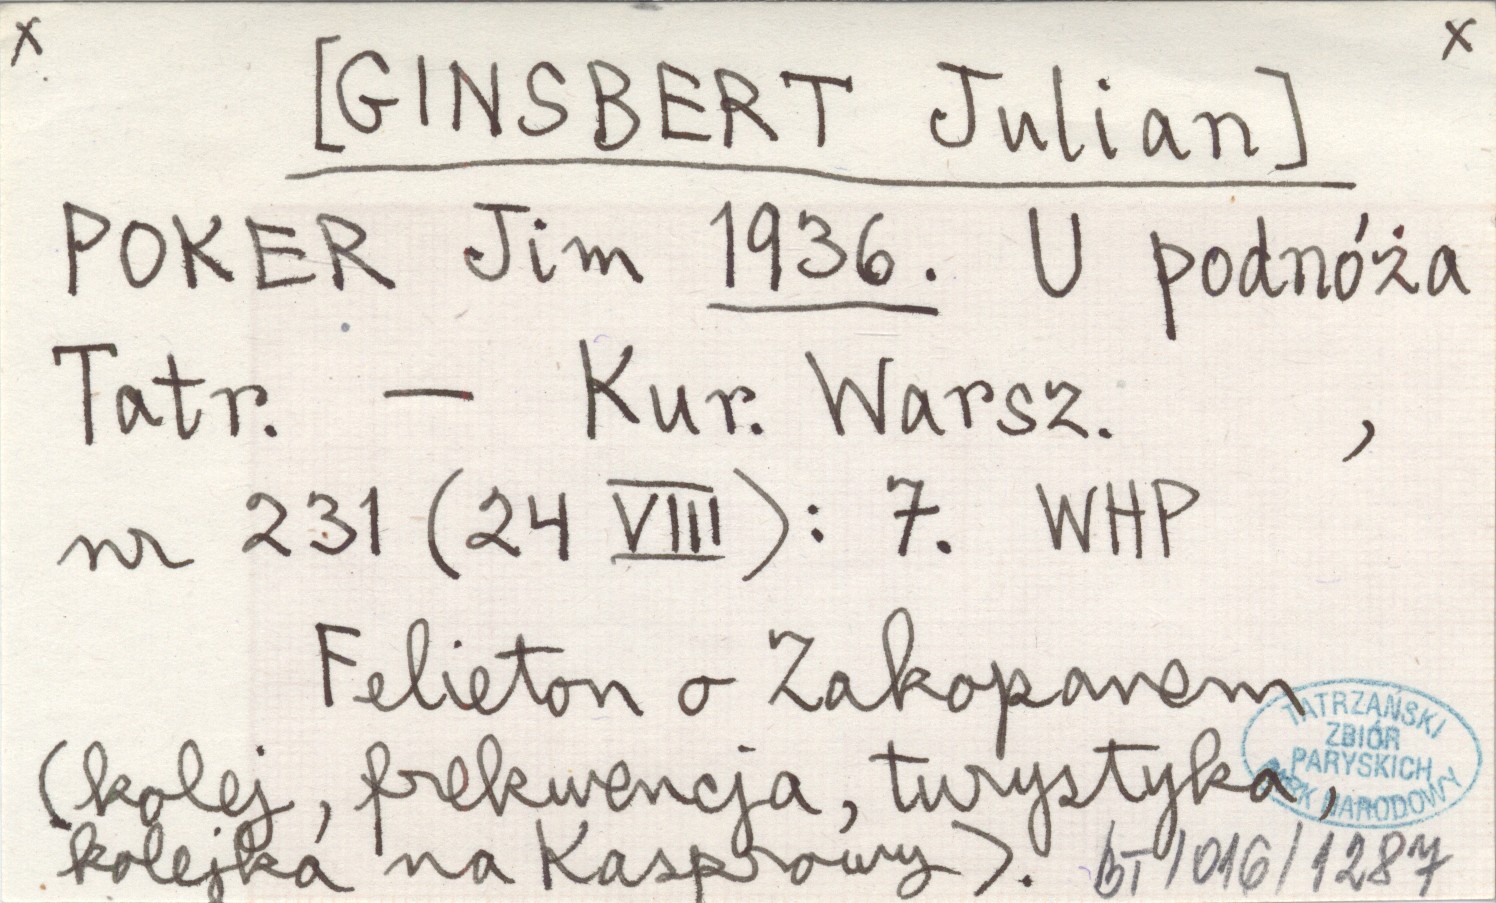 x x
[GINSBERT Julian]
POKER Jim 1936. U podnóża
Tatr. — Kur. Warsz. ,
nr 231 (24 VIII): 7. WHP
Felieton o Zakopanem
(kolej, frekwencja, turystyka,
kolejka na Kasprowy).
TATRZAŃSKI
ZBIÓR
PARYSKICH
PARK NARODOWY
bT/016/1287